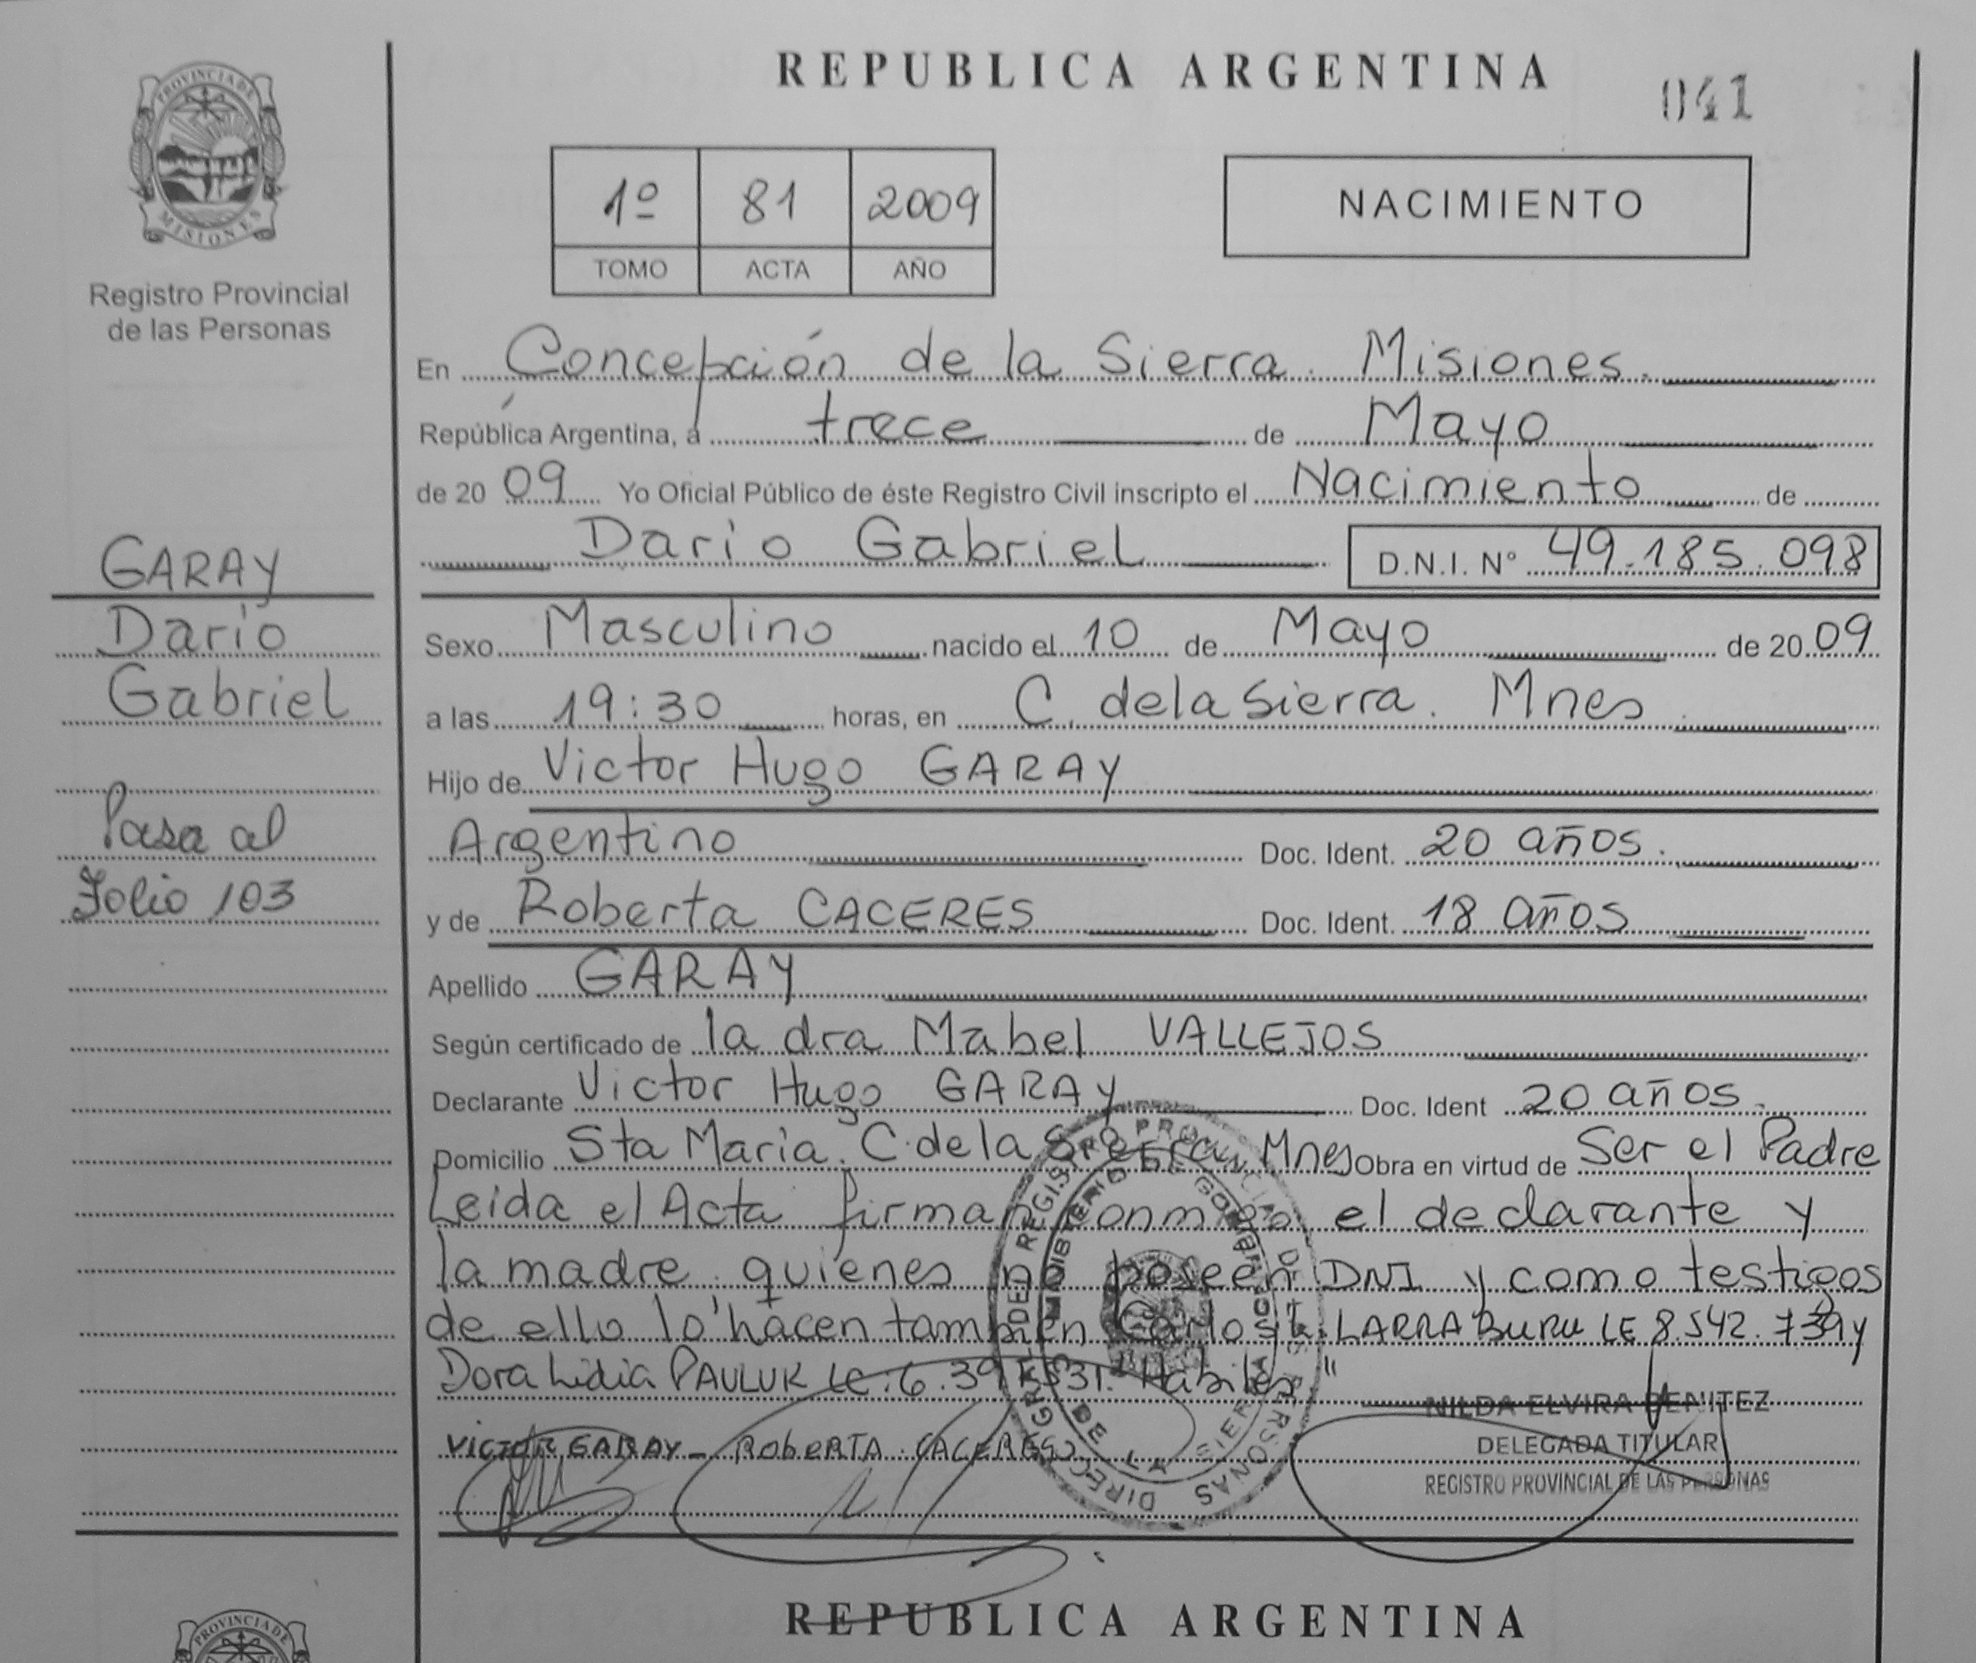 REPUBLICA ARGENTINA
041
PROVINCIA DE MISIONES
Registro Provincial
de las Personas
1º 81 2009
TOMO ACTA AÑO
NACIMIENTO
En Concepción de la Sierra. Misiones.
República Argentina, a trece de Mayo
de 20 09 Yo Oficial Público de éste Registro Civil inscripto el Nacimiento de
Dario Gabriel D.N.I. N° 49.185.098
GARAY
Dario
Gabriel
Pasa al
Folio 103
Sexo Masculino nacido el 10 de Mayo de 20 09
a las 19:30 horas, en C. de la Sierra. Mnes
Hijo de Victor Hugo GARAY
Argentino Doc. Ident. 20 años.
y de Roberta CACERES Doc. Ident. 18 años
Apellido GARAY
Según certificado de la dra Mabel VALLEJOS
Declarante Victor Hugo GARAY Doc. Ident 20 años.
Domicilio Sta Maria. C. de la Sierra. Mnes Obra en virtud de Ser el Padre
Leida el Acta firman conmigo el declarante y
la madre quienes no poseen DNI y como testigos
de ello lo hacen también Carlos LARRABURU LE 8.542.739 y
Dora Lidia PAULUK LC. 6.39 531. "Habiles"
VICTOR GARAY - ROBERTA CACERES
NILDA ELVIRA BENITEZ
DELEGADA TITULAR
REGISTRO PROVINCIAL DE LAS PERSONAS
REPUBLICA ARGENTINA
PROVINCIA DE